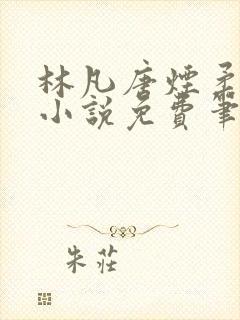 林凡唐煙柔
小説免費筆
朱莊